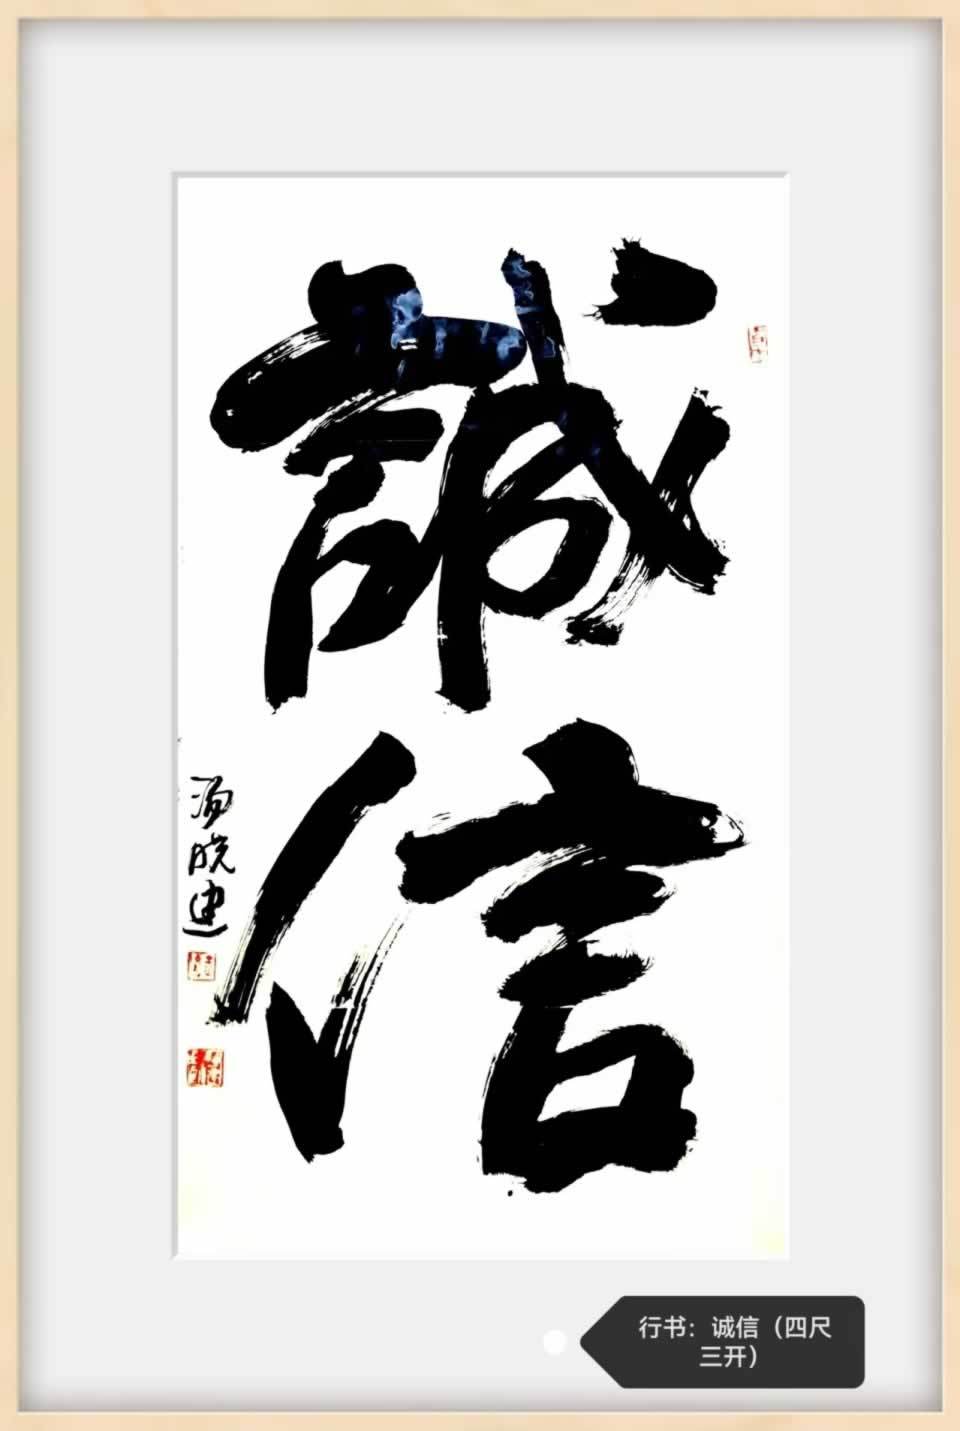 誠信
汤晓建
行书：诚信（四尺
三开）